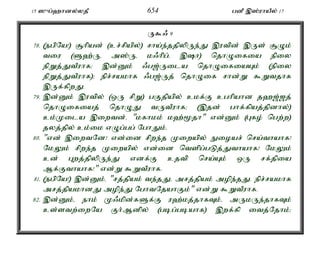 15 ஸுப்ஹானல்லதீ 654 பனீ இஸ்ராயீல் 17
ருகூஃ 9
78. (நபியே) சூரியன் (உச்சியில்) சாய்ந்ததிலிருந்து இரவின் இருள் சூழும்
வரை (ளுஹ்ரு, அஸ்ரு, மஃரிப், இஷா) தொழுகையை நிலை
நிறுத்துவீராக; இன்னும் ஃபஜ்ருடைய தொழுகையையும் (நிலை
நிறுத்துவீராக); நிச்சயமாக ஃபஜ்ருத் தொழுகை சான்று கூறுவதாக
இருக்கிறது.
79. இன்னும் இரவில் (ஒரு சிறு) பகுதியில் உமக்கு உபரியான தஹஜ்ஜத்
தொழுகையைத் தொழுது வருவீராக; (இதன் பாக்கியத்தினால்)
உம்முடைய இறைவன், "மகாமம் மஹ்மூதா" என்னும் (புகழ் பெற்ற)
தலத்தில் உம்மை எழுப்பப் போதும்.
80. "என் இறைவனே! என்னை சிறந்த முறையில் நுழையச் செய்வாயாக!
மேலும் சிறந்த முறையில் என்னை வெளிப்படுத்துவாயாக! மேலும்
உன் புறத்திலிருந்து எனக்கு உதவி செய்யும் ஒரு சக்தியை
ஆக்குவாயாக!" என்று கூறுவீராக.
81. (நபியே) இன்னும், "சத்தியம் வந்தது. அசத்தியம் அழிந்தது. நிச்சயமாக
அசத்தியமானது அழிந்து போவதேயாகும்" என்று கூறுவீராக.
82. இன்னும், நாம் முஃமின்களுக்கு ரஹ்மத்தாகவும், அருமருந்தாகவும்
உள்ளவற்றையே குர்ஆனில் (படிப்படியாக) இறக்கி வைத்தோம்;